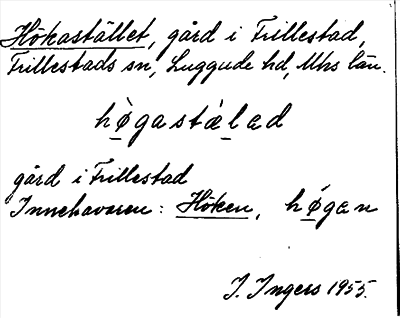 Hökastället, gård i Frillestad,
Frillestads sn, Luggude hd, Mhs län.
hø̀gastæ̀lad
gård i Frillestad
Innehavaren: Höken, hǿgan
I. Ingers 1955.